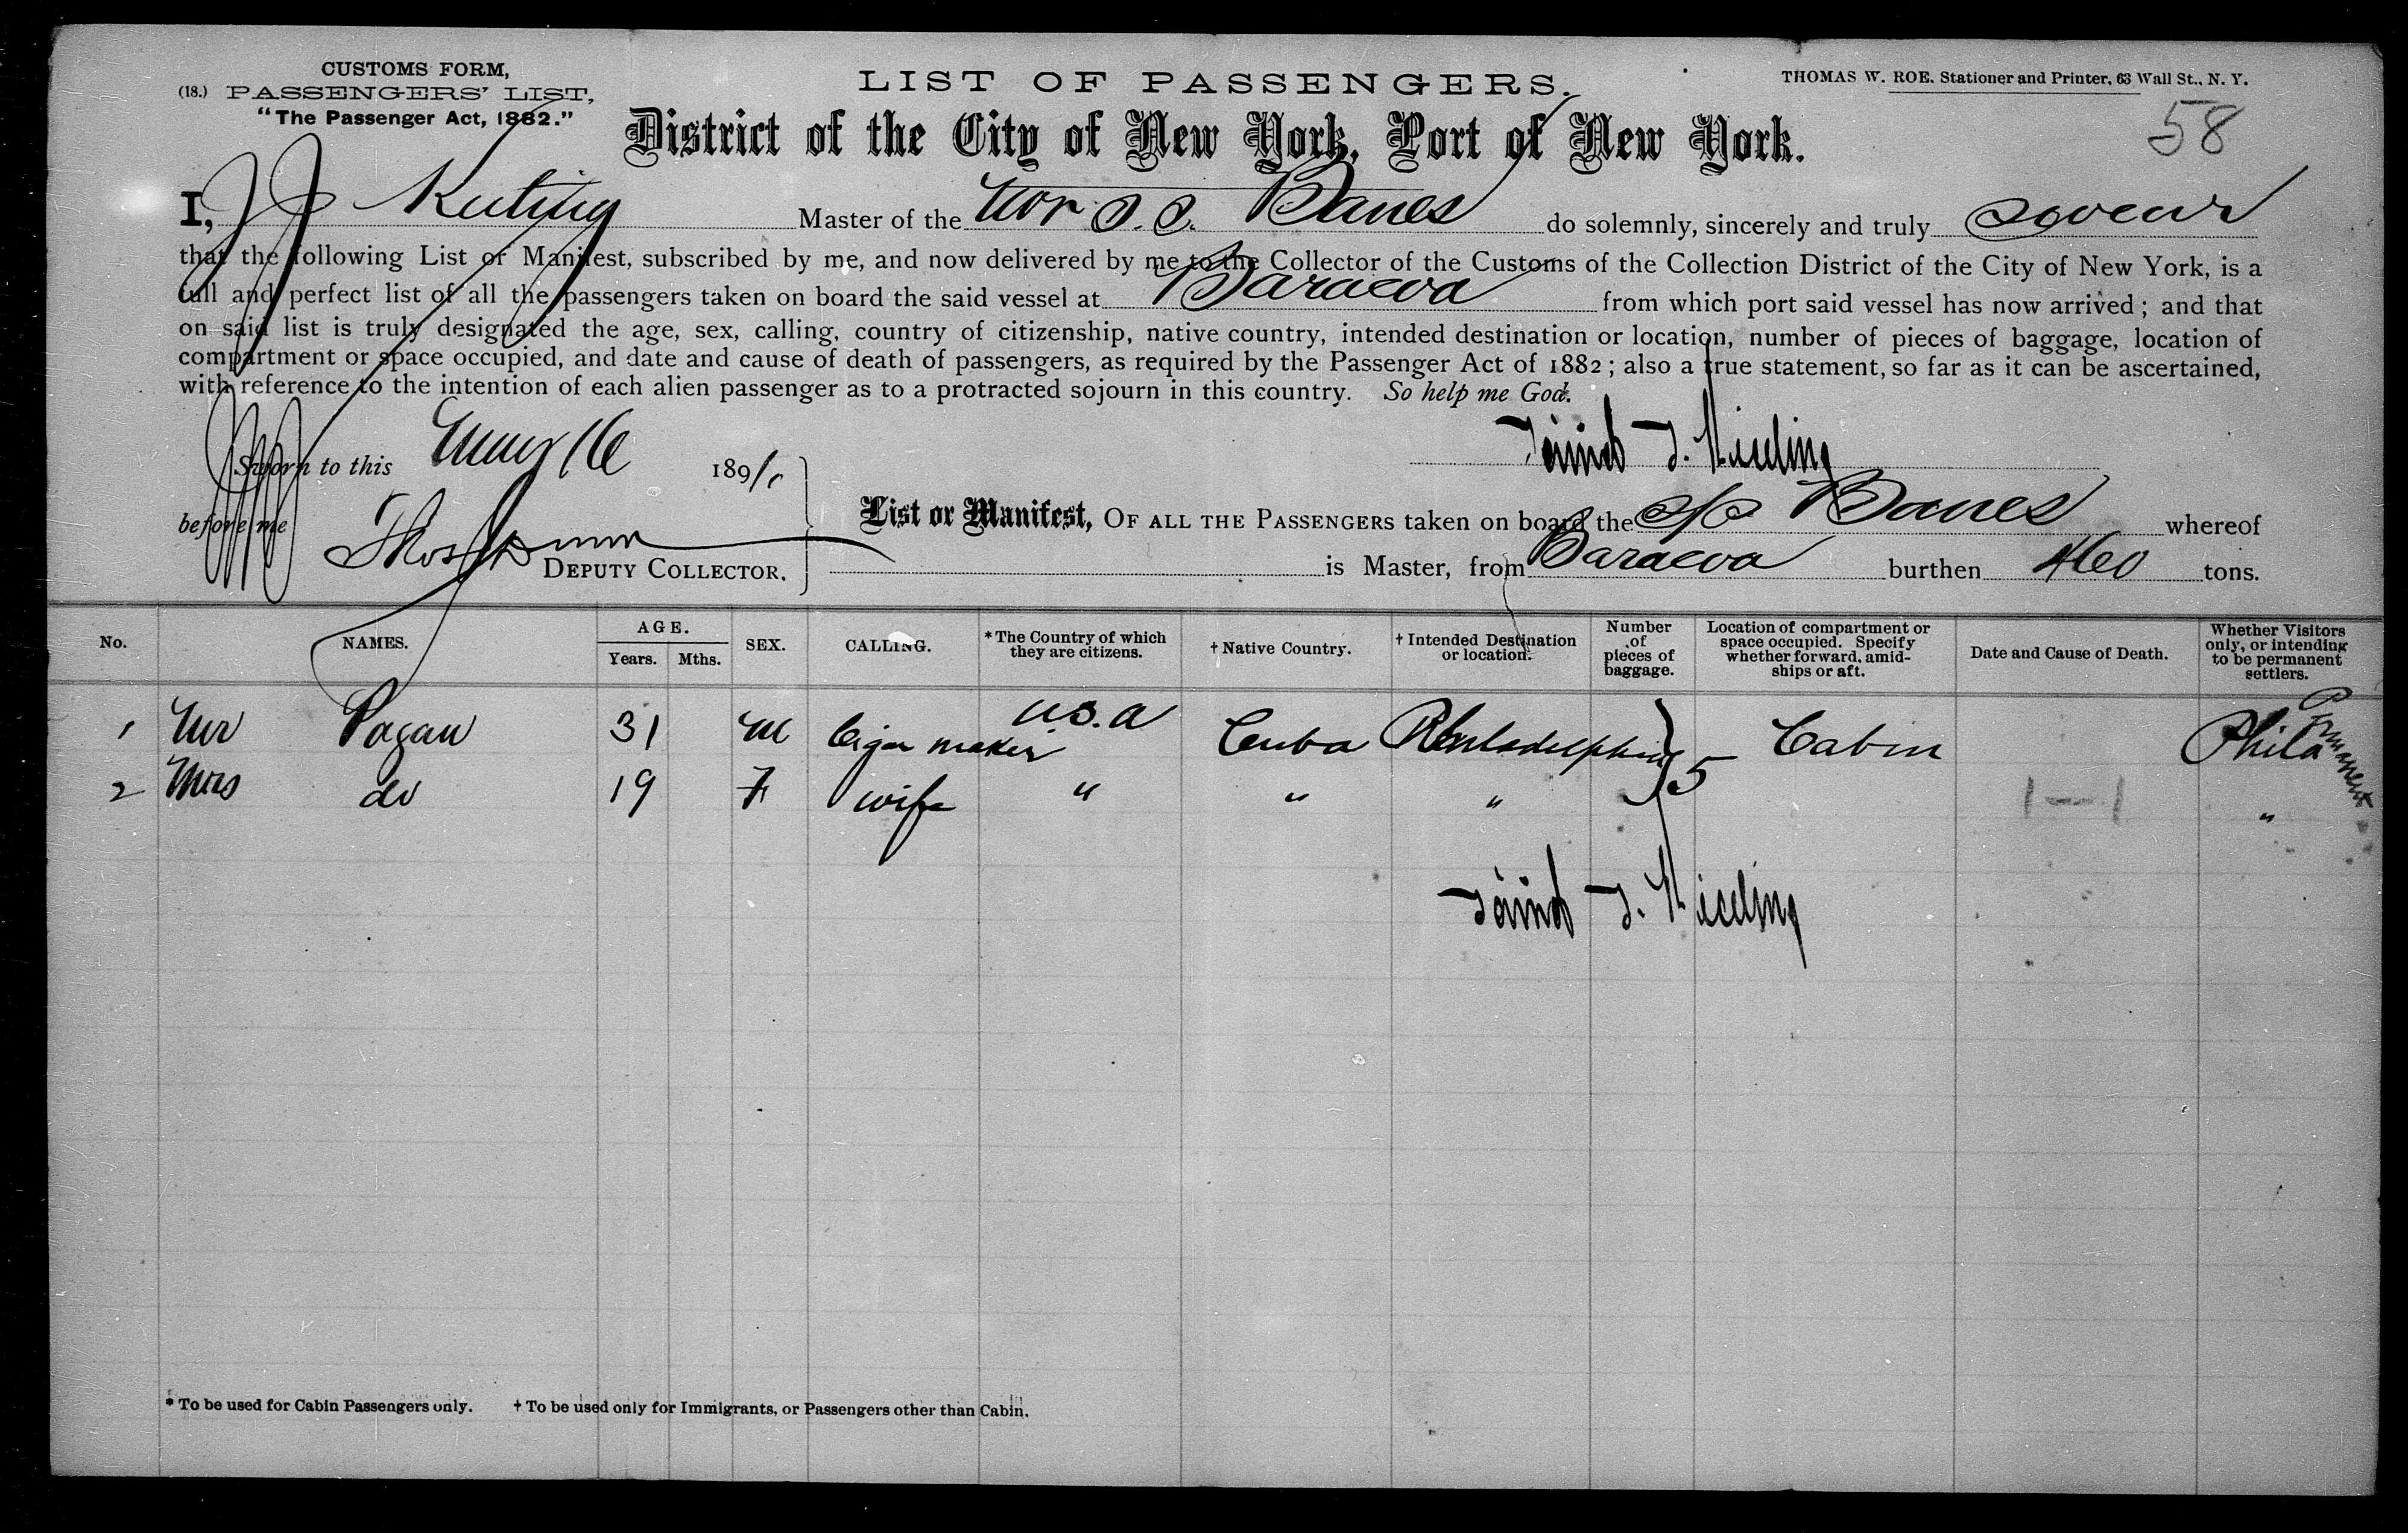 CUSTOMS FORM,
(18.) PASSENGERS' LIST,
"The Passenger Act, 1882."
LIST OF PASSENGERS.
THOMAS W. ROE, Stationer and Printer, 63 Wall St., N. Y.
58
District of the City of New York, Port of New York.
I, Master of the Nor S.S. Banes do solemnly, sincerely and truly swear
that the following List or Manifest, subscribed by me, and now delivered by me to the Collector of the Customs of the Collection District of the City of New York, is a
full and perfect list of all the passengers taken on board the said vessel at Baracoa from which port said vessel has now arrived; and that
on said list is truly designated the age, sex, calling, country of citizenship, native country, intended destination or location, number of pieces of baggage, location of
compartment or space occupied, and date and cause of death of passengers, as required by the Passenger Act of 1882; also a true statement, so far as it can be ascertained,
with reference to the intention of each alien passenger as to a protracted sojourn in this country. So help me God.
Sworn to this May 16 1891
before me
DEPUTY COLLECTOR.
List or Manifest, OF ALL THE PASSENGERS taken on board the S/S Banes whereof
is Master, from Baracoa burthen 460 tons.
No. NAMES. AGE. Years. Mths. SEX. CALLING. *The Country of which they are citizens. †Native Country. †Intended Destination or location. Number of pieces of baggage. Location of compartment or space occupied. Specify whether forward, amidships or aft. Date and Cause of Death. Whether Visitors only, or intending to be permanent settlers.
1 Mr Pagan 31 M Cigar maker U.S.A Cuba Philadelphia 5 Cabin Phila Permanent
2 Mrs do 19 F wife " " " 1—1 "
* To be used for Cabin Passengers only. † To be used only for Immigrants, or Passengers other than Cabin.